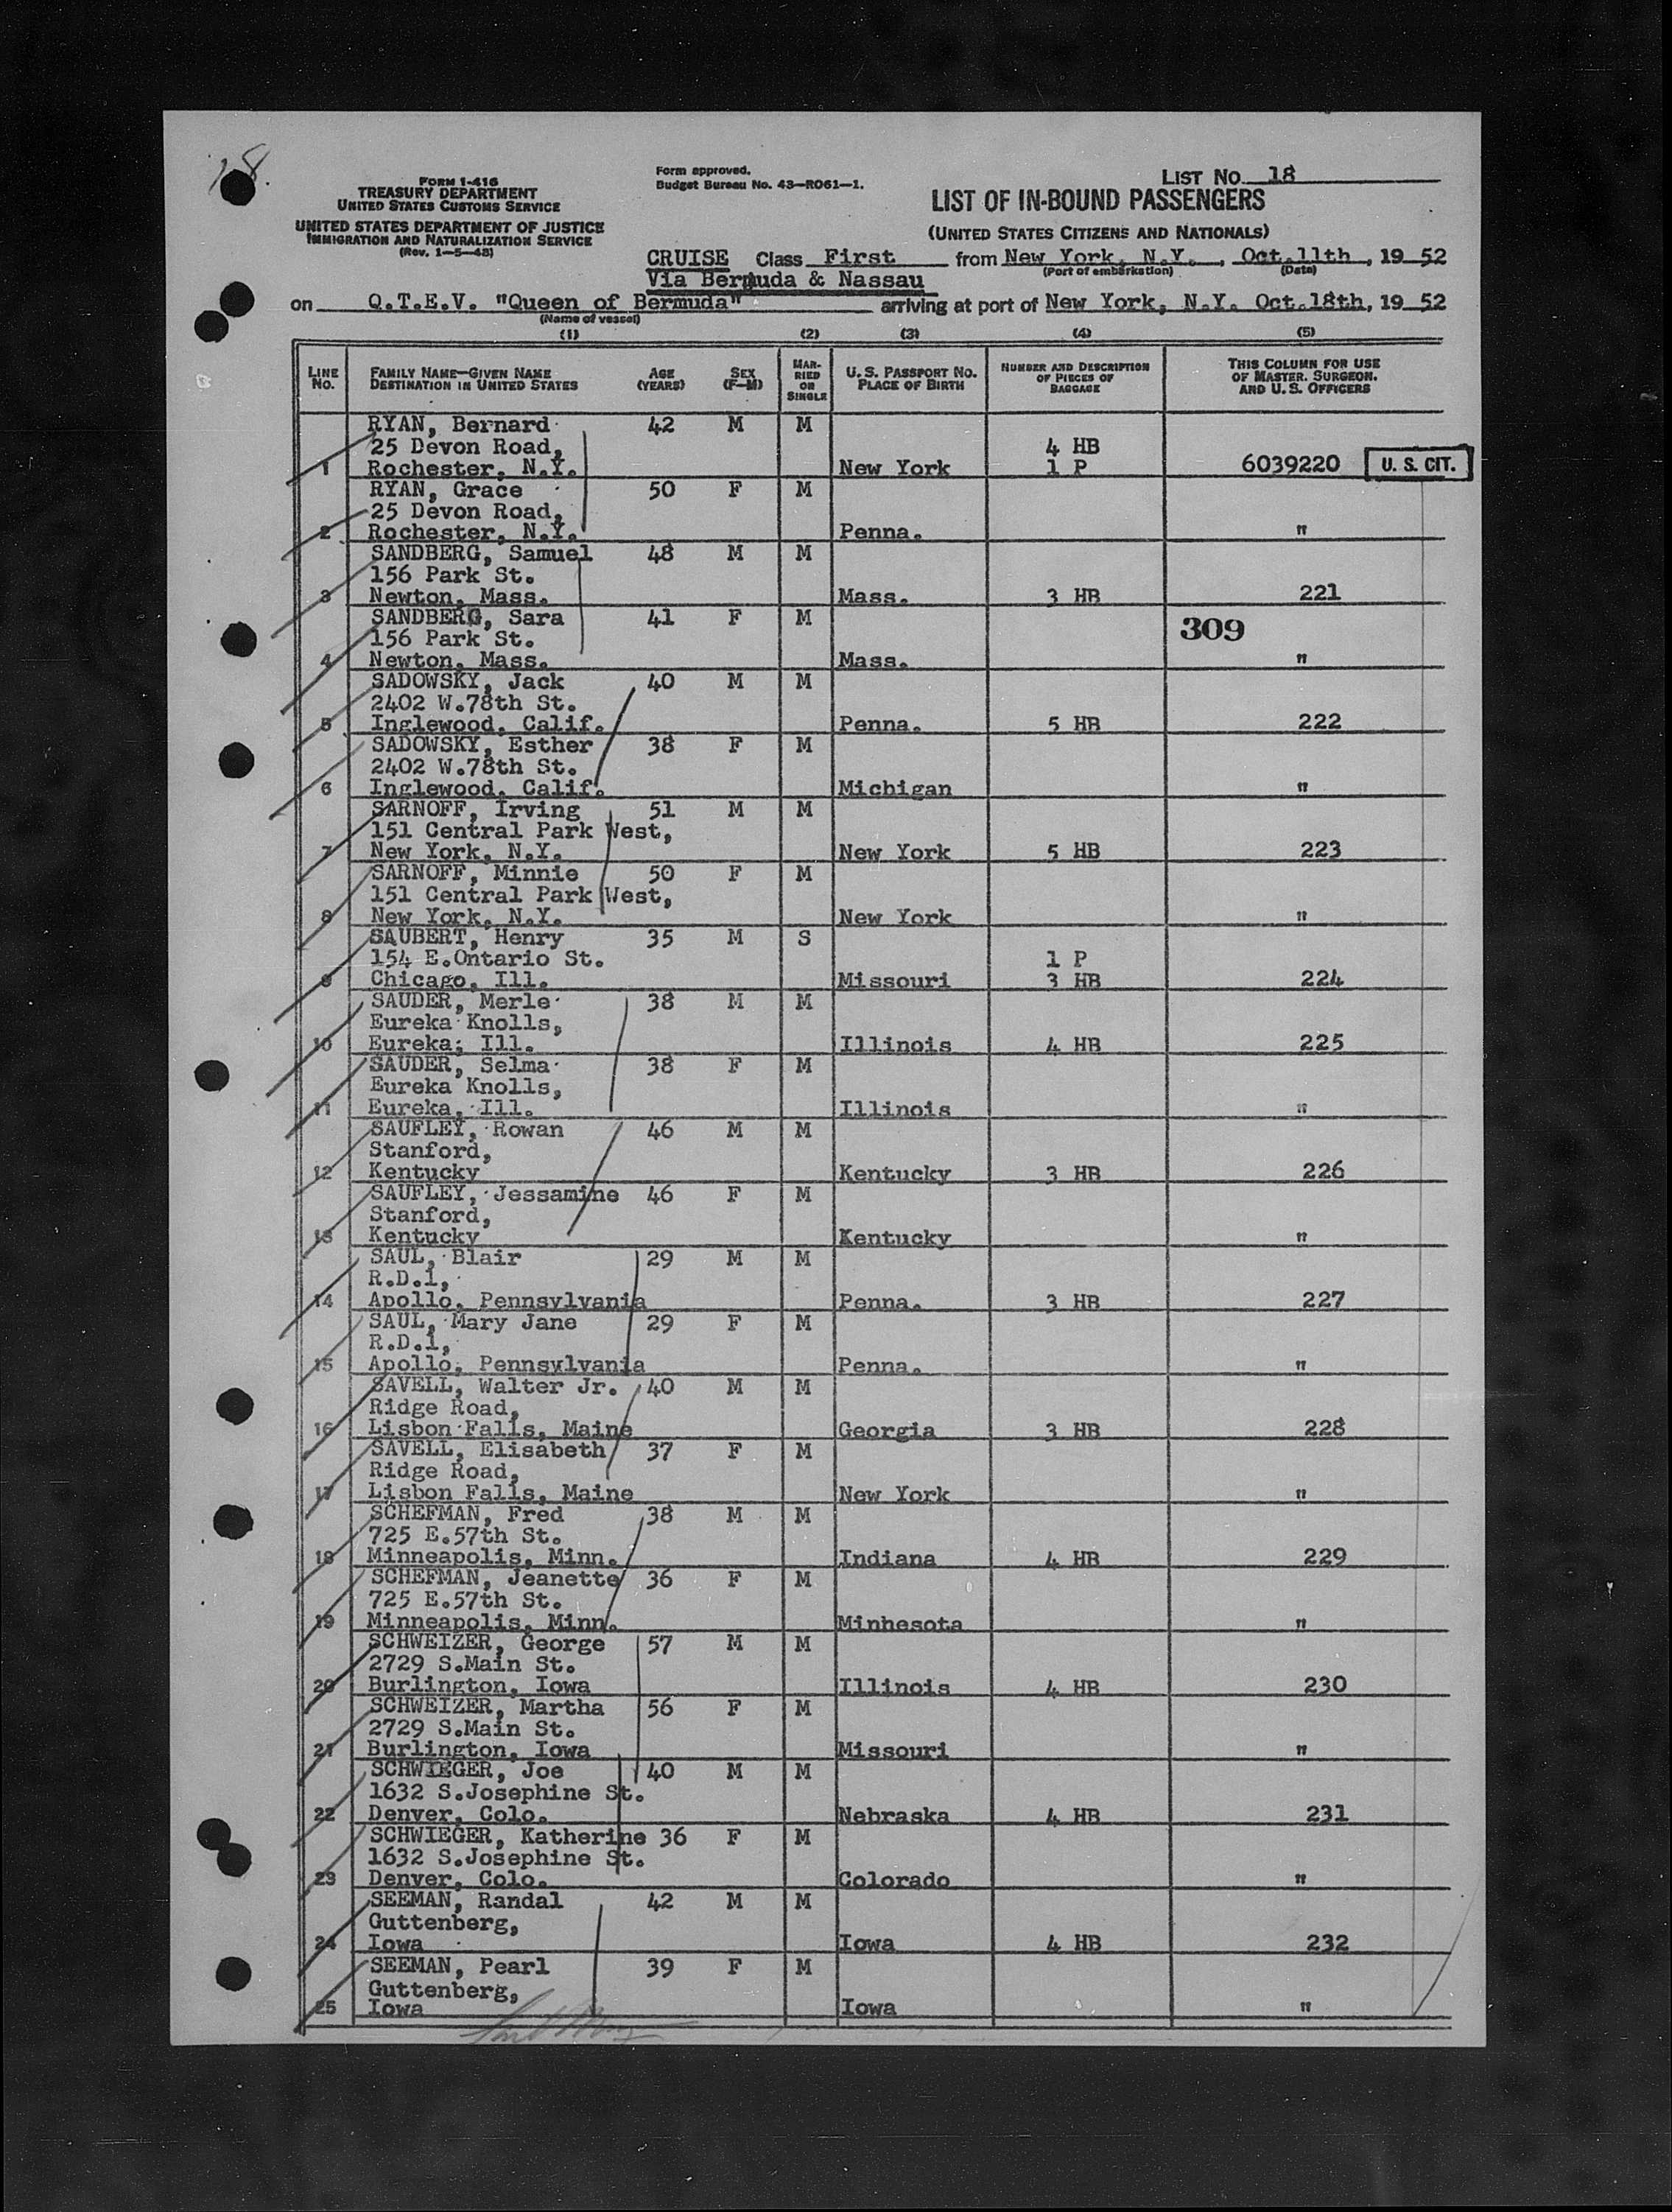 18.
FORM I-416
TREASURY DEPARTMENT
UNITED STATES CUSTOMS SERVICE
UNITED STATES DEPARTMENT OF JUSTICE
IMMIGRATION AND NATURALIZATION SERVICE
(Rev. 1-5-48)
Form approved.
Budget Bureau No. 43-R061-1.
LIST NO. 18
LIST OF IN-BOUND PASSENGERS
(UNITED STATES CITIZENS AND NATIONALS)
CRUISE Class First from New York, N.Y., Oct.11th, 19 52
(Port of embarkation) (Date)
Via Bermuda & Nassau
on Q.T.E.V. "Queen of Bermuda" arriving at port of New York, N.Y. Oct.18th, 19 52
(Name of vessel)
(1) (2) (3) (4) (5)
LINE NO. FAMILY NAME-GIVEN NAME DESTINATION IN UNITED STATES AGE (YEARS) SEX (F-M) MARRIED OR SINGLE U.S. PASSPORT NO. PLACE OF BIRTH NUMBER AND DESCRIPTION OF PIECES OF BAGGAGE THIS COLUMN FOR USE OF MASTER, SURGEON, AND U.S. OFFICERS
RYAN, Bernard 42 M M
25 Devon Road, 4 HB
1 Rochester, N.Y. New York 1 P 6039220 U. S. CIT.
RYAN, Grace 50 F M
25 Devon Road,
2 Rochester, N.Y. Penna. "
SANDBERG, Samuel 48 M M
156 Park St.
3 Newton, Mass. Mass. 3 HB 221
SANDBERG, Sara 41 F M 309
156 Park St.
4 Newton, Mass. Mass. "
SADOWSKY, Jack 40 M M
2402 W.78th St.
5 Inglewood, Calif. Penna. 5 HB 222
SADOWSKY, Esther 38 F M
2402 W.78th St.
6 Inglewood, Calif. Michigan "
SARNOFF, Irving 51 M M
151 Central Park West,
7 New York, N.Y. New York 5 HB 223
SARNOFF, Minnie 50 F M
151 Central Park West,
8 New York, N.Y. New York "
SAUBERT, Henry 35 M S
154 E.Ontario St. 1 P
9 Chicago, Ill. Missouri 3 HB 224
SAUDER, Merle 38 M M
Eureka Knolls,
10 Eureka, Ill. Illinois 4 HB 225
SAUDER, Selma 38 F M
Eureka Knolls,
11 Eureka, Ill. Illinois "
SAUFLEY, Rowan 46 M M
Stanford,
12 Kentucky Kentucky 3 HB 226
SAUFLEY, Jessamine 46 F M
Stanford,
13 Kentucky Kentucky "
SAUL, Blair 29 M M
R.D.1,
14 Apollo, Pennsylvania Penna. 3 HB 227
SAUL, Mary Jane 29 F M
R.D.1,
15 Apollo, Pennsylvania Penna. "
SAVELL, Walter Jr. 40 M M
Ridge Road,
16 Lisbon Falls, Maine Georgia 3 HB 228
SAVELL, Elisabeth 37 F M
Ridge Road,
17 Lisbon Falls, Maine New York "
SCHEFMAN, Fred 38 M M
725 E.57th St.
18 Minneapolis, Minn. Indiana 4 HB 229
SCHEFMAN, Jeanette 36 F M
725 E.57th St.
19 Minneapolis, Minn. Minhesota "
SCHWEIZER, George 57 M M
2729 S.Main St.
20 Burlington, Iowa Illinois 4 HB 230
SCHWEIZER, Martha 56 F M
2729 S.Main St.
21 Burlington, Iowa Missouri "
SCHWIEGER, Joe 40 M M
1632 S.Josephine St.
22 Denver, Colo. Nebraska 4 HB 231
SCHWIEGER, Katherine 36 F M
1632 S.Josephine St.
23 Denver, Colo. Colorado "
SEEMAN, Randal 42 M M
Guttenberg,
24 Iowa Iowa 4 HB 232
SEEMAN, Pearl 39 F M
Guttenberg,
25 Iowa Iowa "